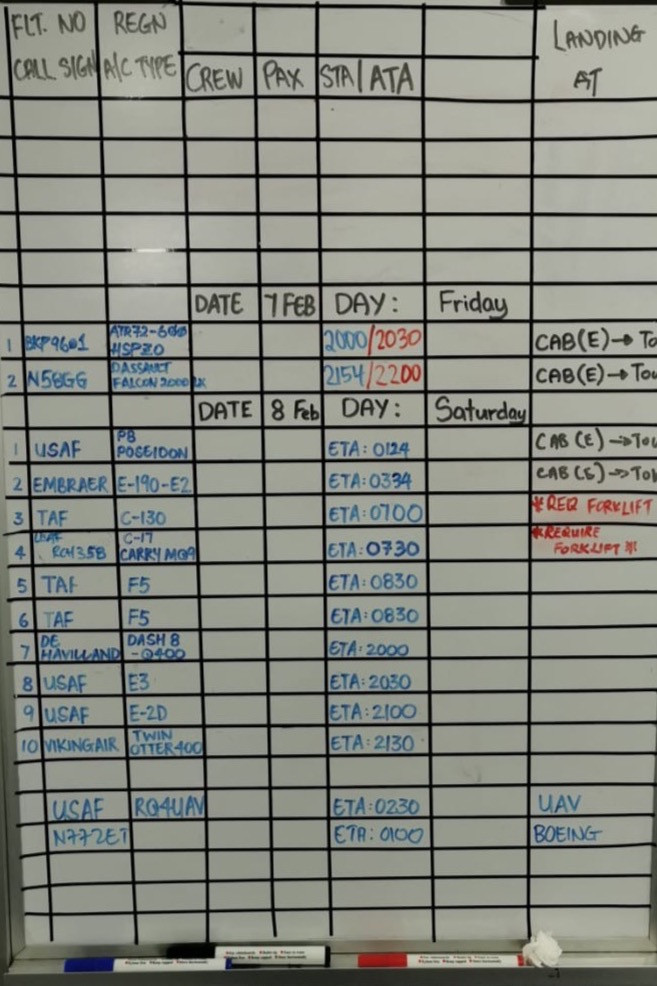 FLT. NO REGN
CALL SIGN A/C TYPE CREW PAX STA/ATA LANDING AT
DATE 7 FEB DAY: Friday
1 BKP9601 ATR72-600 HSPZO 2000/2030 CAB(E)→
2 N58GG DASSAULT FALCON 2000 LX 2154/2200 CAB(E)→
DATE 8 Feb DAY: Saturday
1 USAF P8 POSEIDON ETA: 0124 CAB (E)→
2 EMBRAER E-190-E2 ETA: 0334 CAB (E)→
3 TAF C-130 ETA: 0700 *REQ FORKLIFT
4 RCH358 C-17 CARRY MQ9 ETA: 0730 *REQUIRE FORKLIFT
5 TAF F5 ETA: 0830
6 TAF F5 ETA: 0830
7 DE HAVILLAND DASH 8 -Q400 ETA: 2000
8 USAF E3 ETA: 2030
9 USAF E-2D ETA: 2100
10 VIKINGAIR TWIN OTTER 400 ETA: 2130
USAF RQ4UAV ETA: 0230 UAV
N772ET ETA: 0100 BOEING